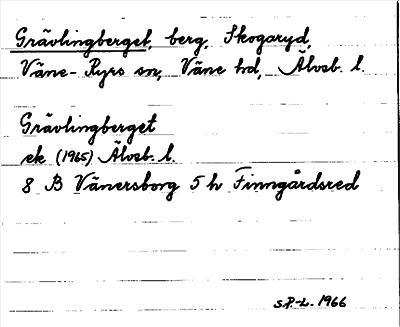 Grävlingberget, berg, Skogaryd,
Väne-Ryrs sn, Väne hd, Älvsb. l.
Grävlingberget
ek (1965) Älvsb. l.
8 B Vänersborg 5 h Finngårdsred
S.P.-L. 1966